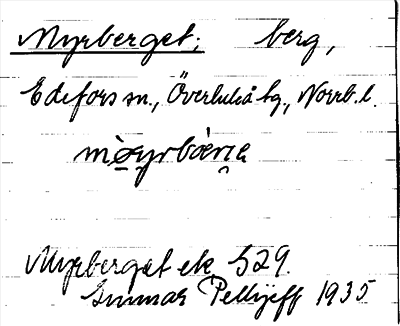 Myrberget; berg,
Edefors sn., Överluleå tg., Norrb. l.
Myrberget ek 529.
Gunnar Pellijeff 1935